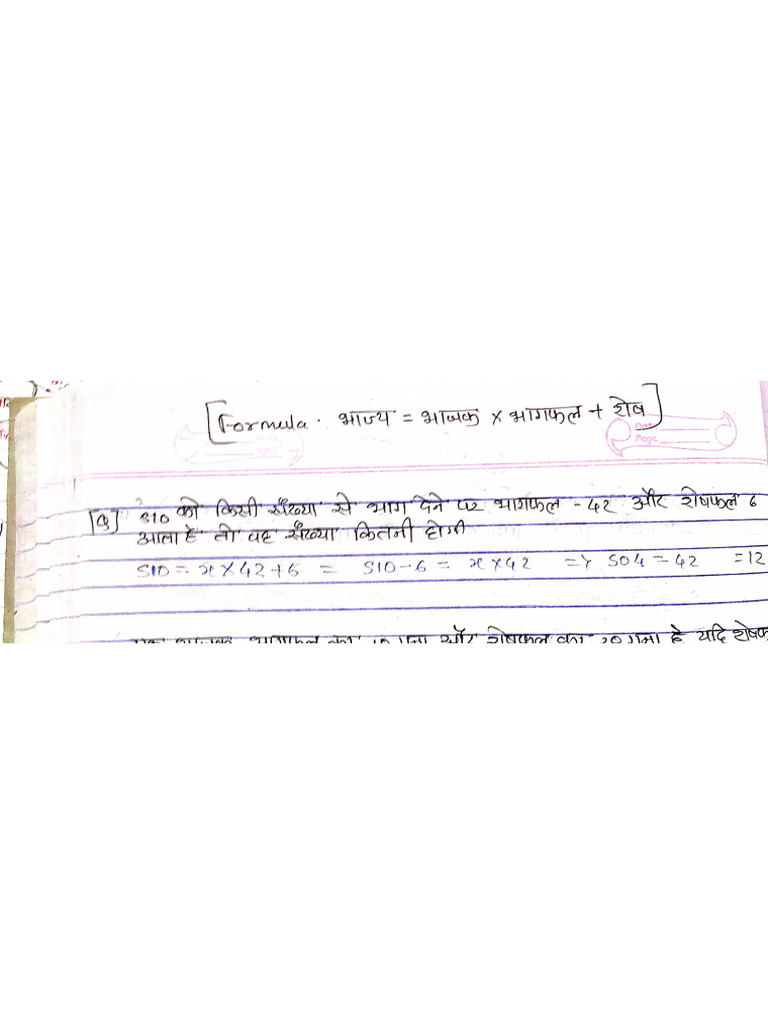 [Formula. भाज्य = भाजक × भागफल + शेष]
[Q] 510 को किसी सँख्या से भाग देने पर भागफल - 42 और शेषफल 6
आता है तो वह सँख्या कितनी होगी
510 = x × 42 + 6 = 510 - 6 = x × 42 => 504 = 42 = 12
भागफल का गुना और शेषफल का गुना है यदि